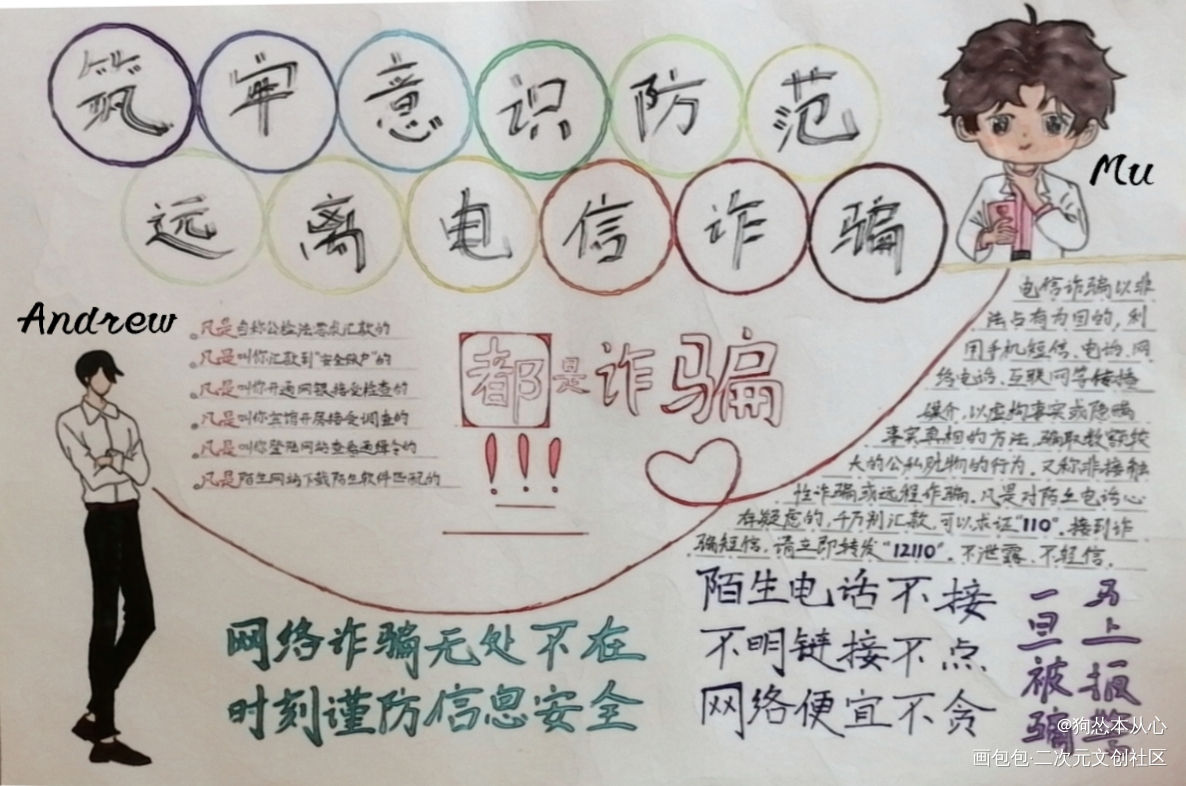 筑牢意识防范
远离电信诈骗
Mu
Andrew
凡是自称公检法要求汇款的
凡是叫你汇款到“安全账户”的
凡是叫你开通网银接受检查的
凡是叫你宾馆开房接受调查的
凡是叫你登陆网站查看通缉令的
凡是陌生网站下载陌生软件匹配的
都是诈骗
!!!
电信诈骗以非
法占有为目的，利
用手机短信、电话、网
络电话、互联网等传播
媒介，以虚构事实或隐瞒
事实真相的方法，骗取数额较
大的公私财物的行为。又称非接触
性诈骗或远程诈骗。凡是对陌生电话心
存疑虑的，千万别汇款，可以求证“110”。接到诈
骗短信，请立即转发“12110”。不泄露、不轻信。
网络诈骗无处不在
时刻谨防信息安全
陌生电话不接
不明链接不点
网络便宜不贪
一旦被骗
马上报警
@狗怂本从心
画包包·二次元文创社区